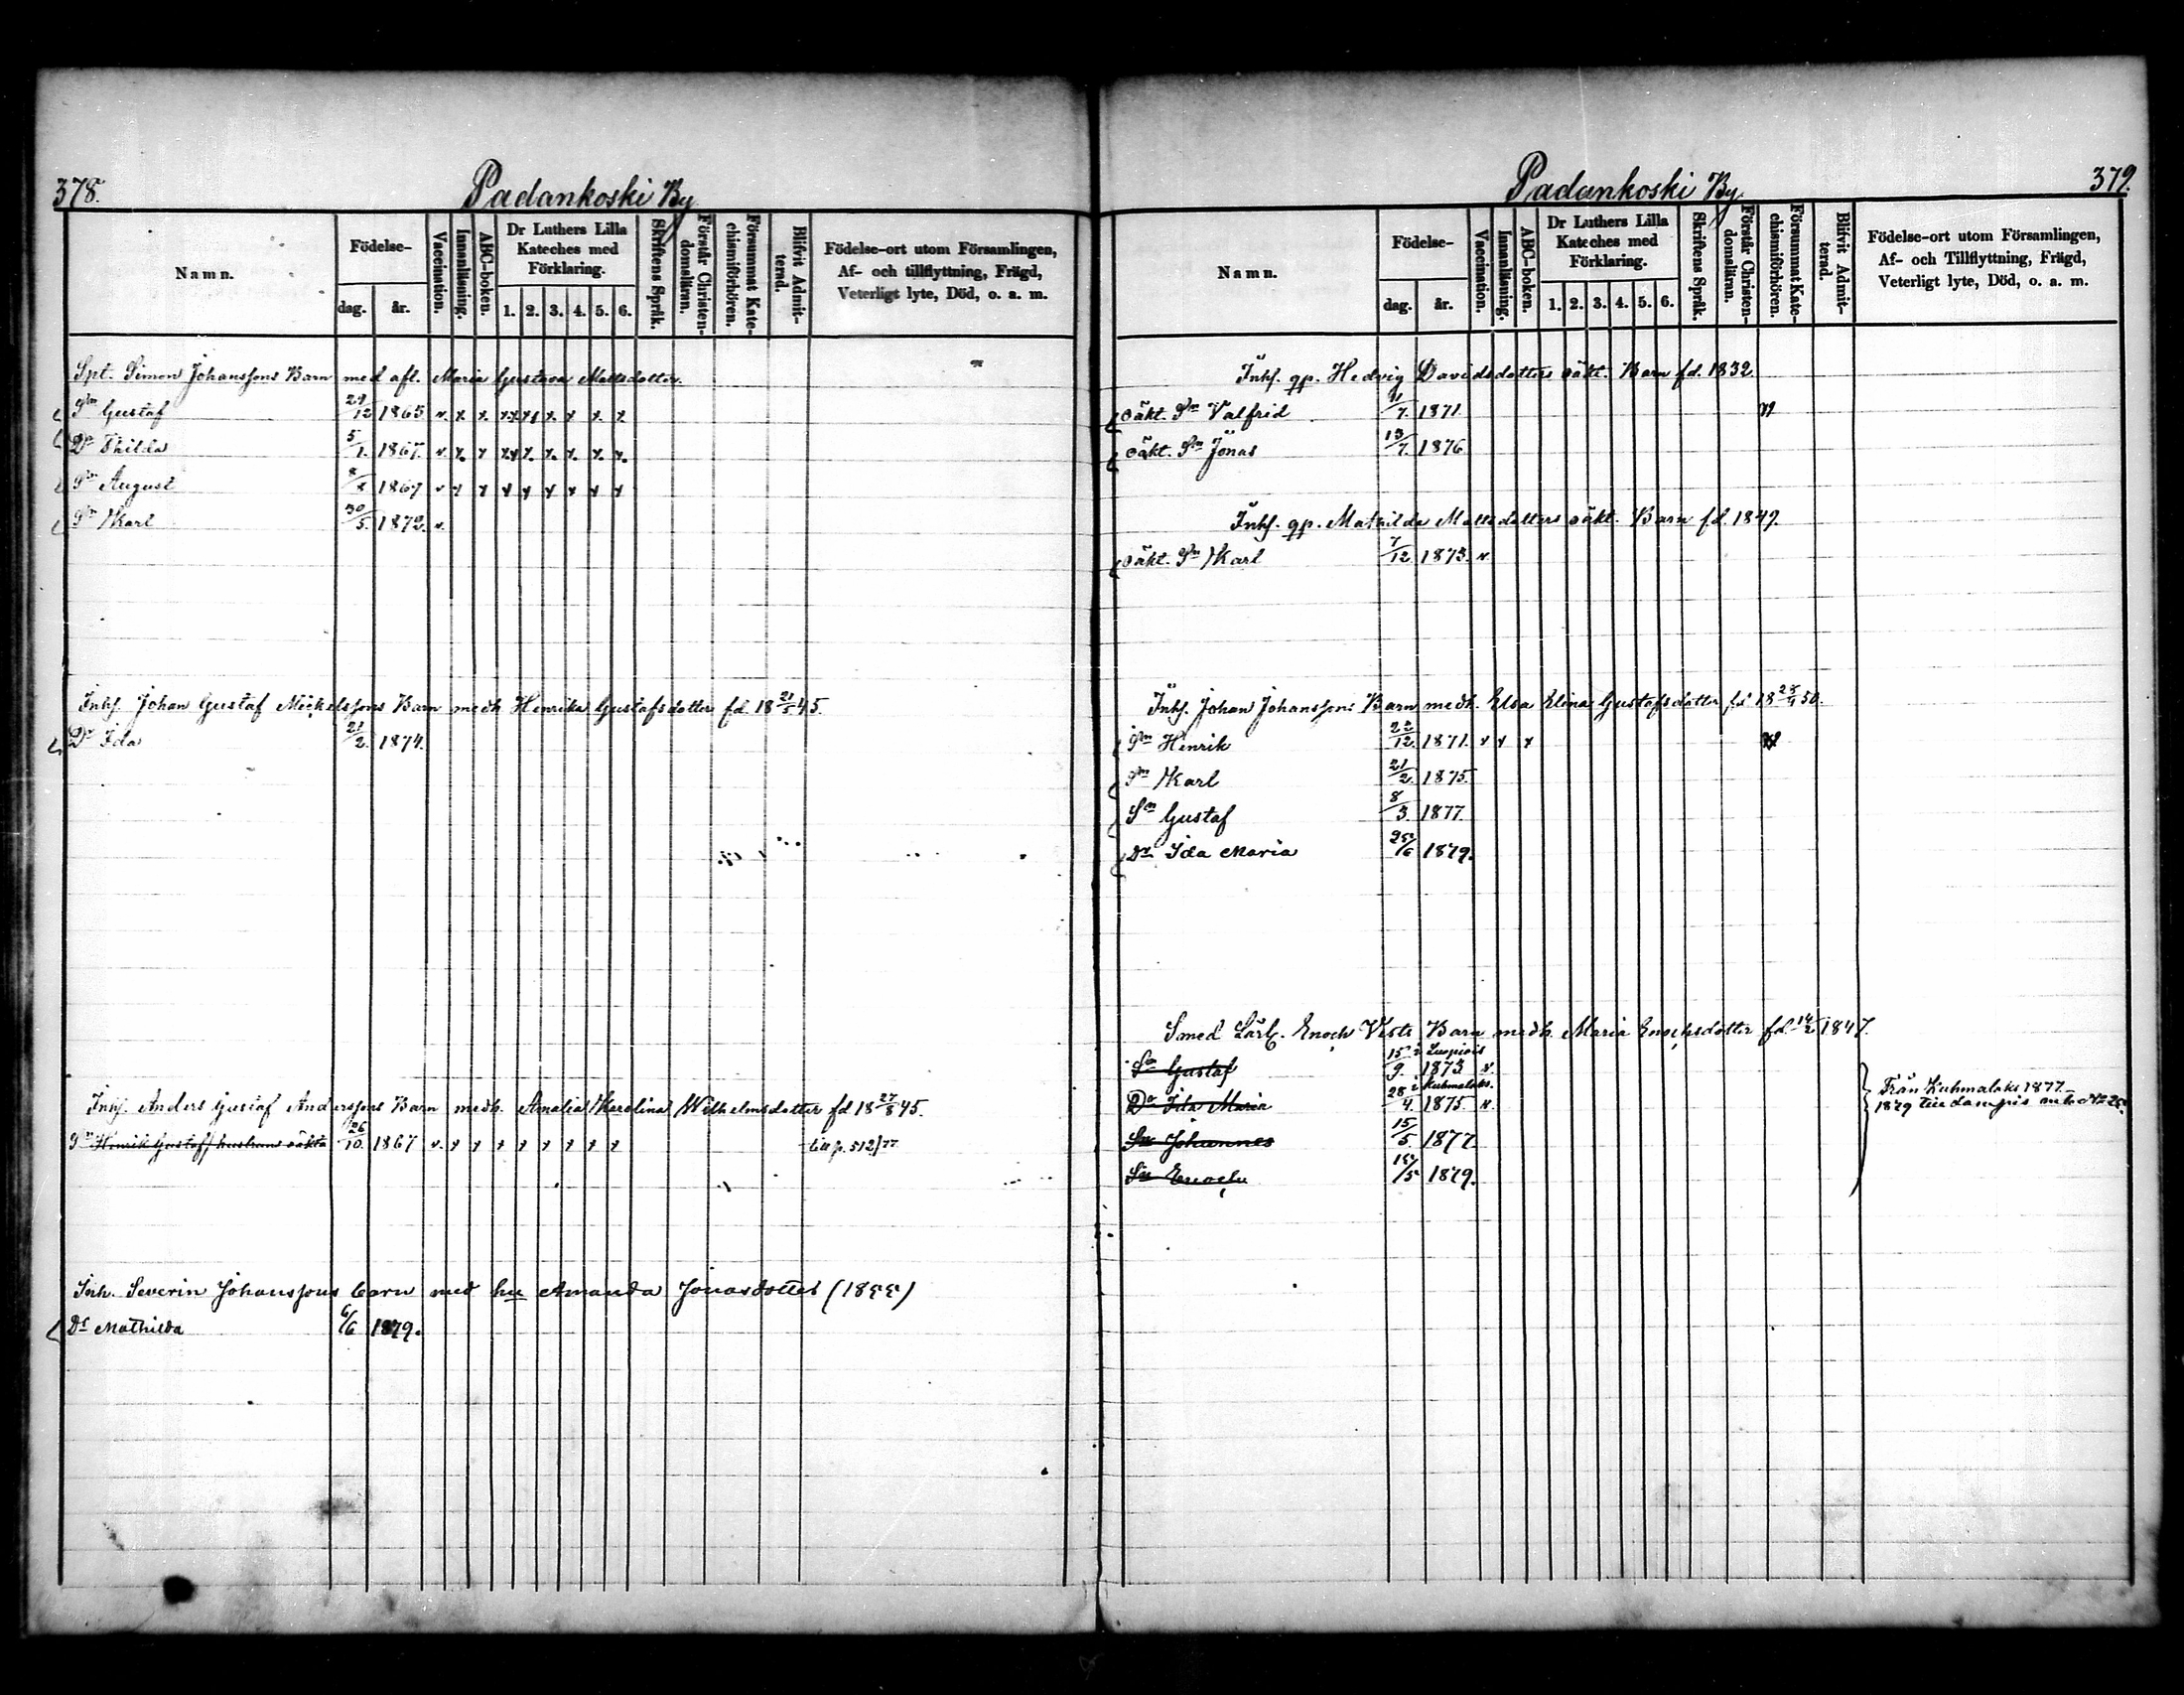 378.
Padankoski By
Namn.
Födelse-
dag.
år.
Vaccination.
Innanläsning.
ABC-boken.
Dr Luthers Lilla
Kateches med
Förklaring.
1. 2. 3. 4. 5. 6.
Skriftens Språk.
Förstår Christen-
domsläran.
Försummat Kate-
chismiförhören.
Blifvit Admit-
terad.
Födelse-ort utom Församlingen,
Af- och tillflyttning, Frägd,
Veterligt lyte, Död, o. a. m.
Spt. Simon Johanssons Barn med afl. Maria Gustava Mattsdotter.
Sn Gustaf 29/12 1865 v. x x. x x x x x x. x
Dr Thilda 5/1. 1867. v. x. x x x x. x. x. x. x.
Sn August 8/8 1869 v x x x x x x x x
Sn Karl 30/5. 1872. v.
Inhs. Johan Gustaf Mickelssons Barn medh Henrika Gustafsdotter fd. 18 21/5 45.
Dr Ida 21/2. 1874.
Inhs. Anders Gustaf Anderssons Barn medh. Amalia Karolina Wilhelmsdotter fd 18 27/8 45.
Sn Henrik Gustaf, hustruns oäkta 26/10. 1867 v. x x x x x x x x till p. 512/77
Inh. Severin Johanssons barn med hu Amanda Jonasdotter (1855)
Dr Mathilda 6/6 1879.
379.
Padankoski By.
Namn.
Födelse-
dag.
år.
Vaccination.
Innanläsning.
ABC-boken.
Dr Luthers Lilla
Kateches med
Förklaring.
1. 2. 3. 4. 5. 6.
Skriftens Språk.
Förstår Christen-
domsläran.
Försummat Kate-
chismiförhören.
Blifvit Admit-
terad.
Födelse-ort utom Församlingen,
Af- och Tillflyttning, Frägd,
Veterligt lyte, Död, o. a. m.
Inhs. qp. Hedvig Davidsdotters oäkt. Barn fd. 1832.
oäkt. Sn Valfrid 11/7. 1871.
oäkt. Sn Jonas 13/7. 1876
Inhs. qp. Mathilda Mattsdotters oäkt. Barn fd. 1849.
oäkt. Sn Karl 7/12 1873. v.
Inhs. Johan Johanssons Barn medh. Elsa Elina Gustafsdotter fd 18 28/9 50.
Sn Henrik 22/12. 1871. x x x
Sn Karl 21/2. 1875.
Sn Gustaf 8/3. 1877.
Dr Ida Maria 25/6 1879.
Smed Lärl. Enoch Vists Barn medh. Maria Enochsdotter fd. 14/2 1847.
Sn Gustaf 15/9. i Luopiois 1873 v.
Dr Ida Maria 28/4. i Kuhmalaks. 1875. v.
Sn Johannes 15/5. 1877.
Sn Enoch 15/5 1879.
Från Kuhmalaks 1877.
1879 till Lampis m. b. No 25.